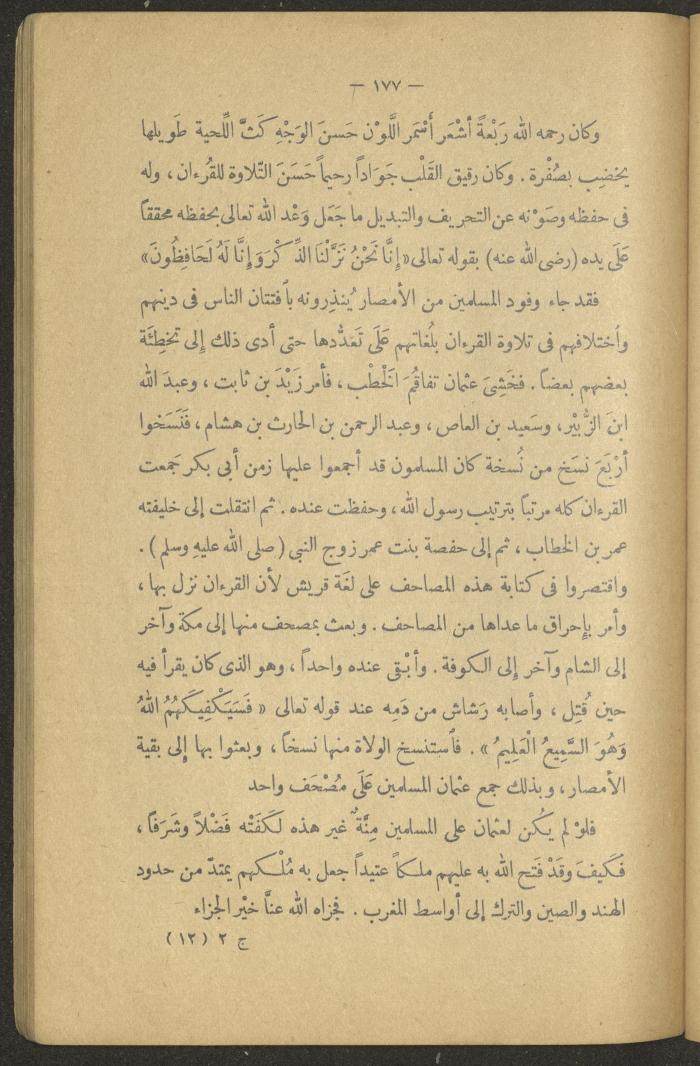 — ١٧٧ —
وكان رحمه الله رَبْعَةً أشْعَر أَسْمَر اللَّوْن حَسنَ الوَجْهِ كَثَّ اللِّحية طَويلها
يخضِب بصُفْرة . وكان رقيق القَلْب جَوَاداً رحيماً حَسَنَ التّلاوة للقُرءان ، وله
فى حفظه وصَوْنه عن التحريف والتبديل ما جَعَل وَعْد الله تعالى بحفظه محققاً
عَلَى يده (رضى الله عنه) بقوله تعالى «إِنَّا نَحْنُ نَزَّلْنَا الذِّكْرَ وَإِنَّا لَهُ لَحَافِظُونَ»
فقد جاء وفود المسلمين من الأمصار يُنذِرونه بٱفتتان الناس فى دينهم
وٱختلافهم فى تلاوة القرءان بلُغاتهم عَلَى تَعَدُّدها حتى أدى ذلك إلى تخطِئَة
بعضهم بعضاً . فخَشِىَ عثمان تفاقُمَ الخَطْب ، فأمر زَيْدَ بن ثابت ، وعبدَ الله
ابنَ الزُّبيْر، وسَعيد بن العاص ، وعبد الرحمن بن الحارث بن هشام ، فَنَسَخوا
أرْبَعَ نسَخ من نُسخة كان المسلمون قد أجمعوا عليها زمن أبى بكر جَمعت
القرءان كله مرتباً بترتيب رسول الله ، وحفظت عنده . ثم انتقلت إلى خليفته
عمر بن الخطاب ، ثم إلى حفصة بنت عمر زوج النبى (صلى الله عليهِ وسلم) .
واقتصروا فى كتابة هذه المصاحف على لغَة قريش لأن القرءان نزل بها ،
وأمر بإِحراق ما عداها من المصاحف . وبعث بمصحف منها إلى مكة وآخر
إلى الشام وآخر إلى الكوفة . وأبْقى عنده واحداً ، وهو الذى كان يقرأ فيه
حين قُتِل ، وأصابه رَشاش من دَمِه عند قوله تعالى « فَسَيَكْفِيكَهُمُ اللهُ
وَهُوَ السَّمِيعُ الْعَلِيمُ » . فٱستنسخ الولاة منها نسخاً ، وبعثوا بها إلى بقية
الأمصار ، وبذلك جمع عثمان المسلمين عَلَى مُصْحَف واحد
فلوْ لم يكُن لعثمان على المسلمين مِنَّةٌ غير هذه لكَفَتْه فَضْلاً وشَرَفاً ،
فكيفَ وقَدْ فَتح الله به عليهم ملكاً عتيداً جعل به مُلْكهم يمتدّ من حدود
الهند والصين والترك إلى أواسط المغرب . فجزاه الله عنَّا خيْر الجزاء
ج ٢ (١٢)